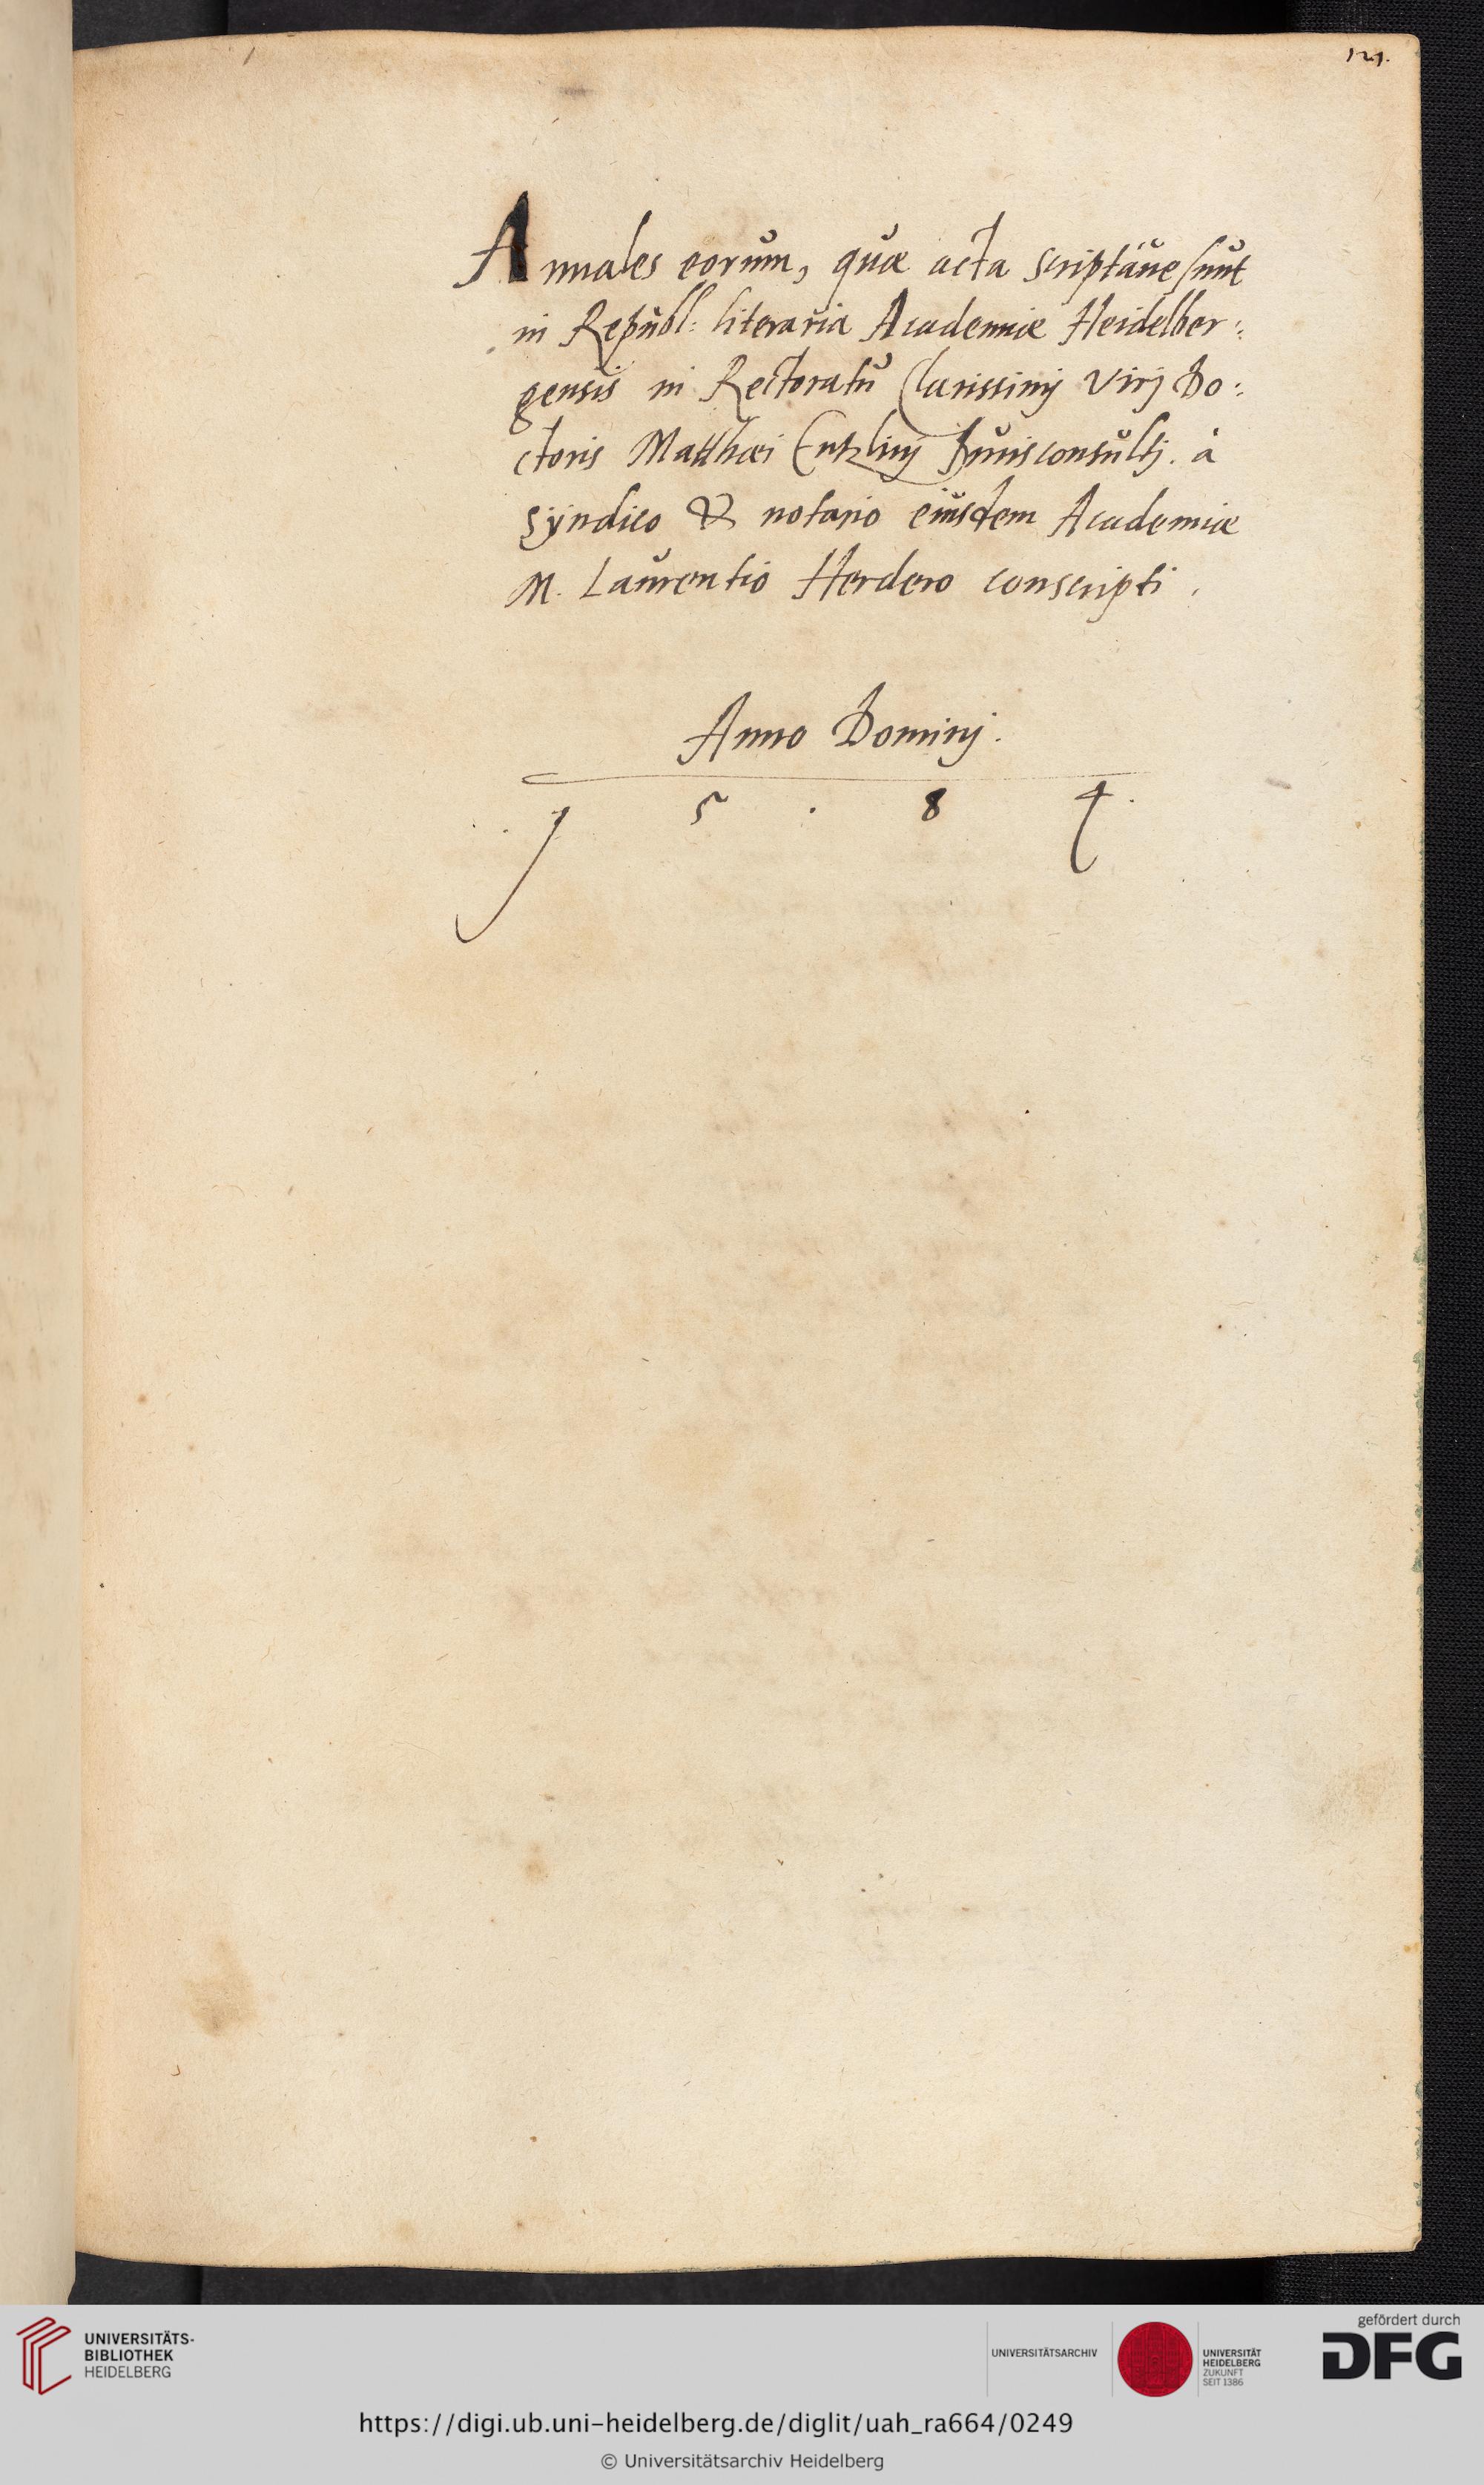 121.
Annales eorum, quæ acta scriptáue sunt
in Republ: literaria Academiæ Heidelber:
gensis in Rectoratu Clarissimj Virj Do:
ctoris Matthæi Entzlinj Iurisconsultj. à
Syndico & notario eiusdem Academiæ
M. Laurentio Herdero conscripti.
Anno Dominj.
1 5 . 8 4.
UNIVERSITÄTS-
BIBLIOTHEK
HEIDELBERG
UNIVERSITÄTSARCHIV
UNIVERSITÄT
HEIDELBERG
ZUKUNFT
SEIT 1386
gefördert durch
DFG
https://digi.ub.uni-heidelberg.de/diglit/uah_ra664/0249
© Universitätsarchiv Heidelberg